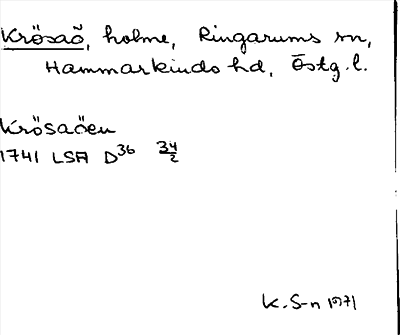 Krösaö, holme, Ringarums sn,
Hammarkinds hd, Östg.l.
Krösaöen
1741 LSA D36 34/2
K.S-n 1971